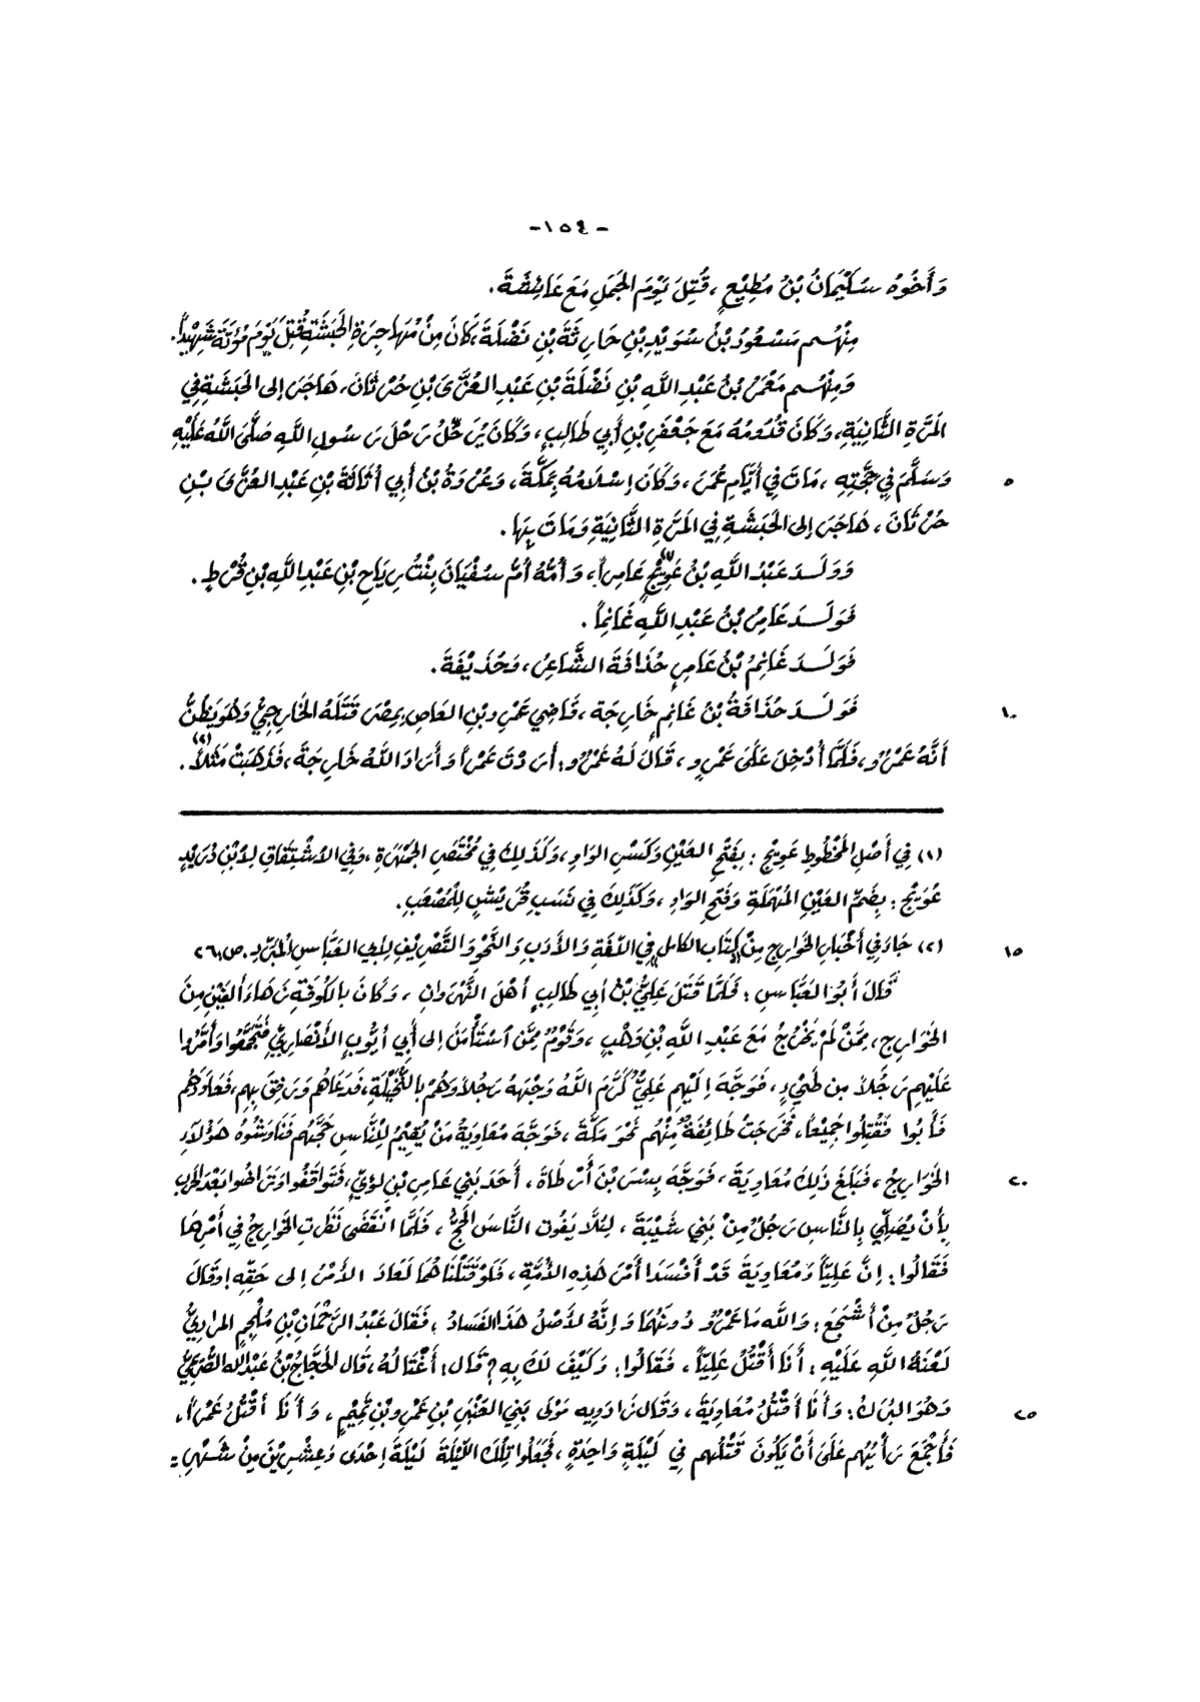 -١٥٤-
وَأَخُوهُ سُلَيْمَانُ بْنُ مُطِيْعٍ، قُتِلَ يَوْمَ الجَمَلِ مَعَ عَائِشَةَ.
مِنْهُم مَسْعُودُ بْنُ سُوَيْدِ بْنِ حَارِثَةَ بْنِ نَضْلَةَ، كَانَ مِنْ مُهَاجِرَةِ الحَبَشَةِ قُتِلَ يَوْمَ مُؤْتَةَ شَهِيْداً.
وَمِنْهُم مَعْمَرُ بْنُ عَبْدِ اللهِ بْنِ نَضْلَةَ بْنِ عَبْدِ العُزَّى بْنِ حُرْثَانَ، هَاجَرَ إلى الحَبَشَةِ فِي
المَرَّةِ الثَّانِيَةِ، وَكَانَ قُدُومُهُ مَعَ جَعْفَرِ بْنِ أَبِي طَالِبٍ، وَكَانَ يُرَحِّلُ رَحْلَ رَسُولِ اللهِ صَلَّى اللهُ عَلَيْهِ
وَسَلَّمَ فِي حَجَّتِهِ، مَاتَ فِي أَيَّامِ عُمَرَ، وَكَانَ إِسْلَامُهُ بِمَكَّةَ، وَعُرْوَةُ بْنُ أَبِي أُثَاثَةَ بْنِ عَبْدِ العُزَّى بْنِ ٥
حُرْثَانَ، هَاجَرَ إلى الحَبَشَةِ فِي المَرَّةِ الثَّانِيَةِ وَمَاتَ بِهَا.
وَوَلَدَ عَبْدُ اللهِ بْنُ عَوِيْجٍ(١) عَامِراً، وَأُمُّهُ أُمُّ سُفْيَانَ بِنْتُ رِيَاحِ بْنِ عَبْدِ اللهِ بْنِ قُرْطٍ.
فَوَلَدَ عَامِرُ بْنُ عَبْدِ اللهِ غَانِماً.
فَوَلَدَ غَانِمُ بْنُ عَامِرٍ حُذَافَةَ الشَّاعِرُ، وَحُذَيْفَةَ.
فَوَلَدَ حُذَافَةُ بْنُ غَانِمٍ خَارِجَةَ، قَاضِي عَمْرِو بْنِ العَاصِ بِمِصْرَ قَتَلَهُ الخَارِجِيُّ وَهُوَ يَظُنُّ ١٠
أَنَّهُ عَمْرٌو، فَلَمَّا أُدْخِلَ عَلَى عَمْرٍو، قَالَ لَهُ عَمْرٌو: أَرَدْتَ عَمْراً وَأَرَادَ اللهُ خَارِجَةَ، فَذَهَبَتْ مَثَلاً(٢).
(١) فِي أَصْلِ المَخْطُوطِ عَوِيْجُ: بِفَتْحِ العَيْنِ وَكَسْرِ الوَاوِ، وَكَذَلِكَ فِي مُخْتَصَرِ الجَمْهَرَةِ، وَفِي الاشْتِقَاقِ لِابْنِ دُرَيْدٍ
عُوَيْجُ: بِضَمِّ العَيْنِ المُهْمَلَةِ وَفَتْحِ الوَاوِ، وَكَذَلِكَ فِي نَسَبِ قُرَيْشٍ لِلْمُصْعَبِ.
(٢) جَاءَ فِي أَخْبَارِ الخَوَارِجِ مِنْ كِتَابِ الكَامِلِ فِي اللُّغَةِ وَالأَدَبِ وَالنَّحْوِ وَالتَّصْرِيْفِ لِأَبِي العَبَّاسِ المُبَرِّدِ. ص ٢٦١ ١٥
قَالَ أَبُو العَبَّاسِ: فَلَمَّا قَتَلَ عَلِيُّ بْنُ أَبِي طَالِبٍ أَهْلَ النَّهْرَوَانِ، وَكَانَ بِالكُوفَةِ زُهَاءَ أَلْفَيْنِ مِنَ
الخَوَارِجِ، مِمَّنْ لَمْ يَخْرُجْ مَعَ عَبْدِ اللهِ بْنِ وَهْبٍ، وَقَوْمٌ مِمَّنِ اسْتَأْمَنَ إلى أَبِي أَيُّوبِ الأَنْصَارِيِّ فَتَجَمَّعُوا وَأَمَّرُوا
عَلَيْهِم رَجُلاً مِن طَيِّءٍ، فَوَجَّهَ إِلَيْهِم عَلِيٌّ كَرَّمَ اللهُ وَجْهَهُ رَجُلاً وَهُمْ بِالنُّخَيْلَةِ، فَدَعَاهُم وَرَفِقَ بِهِم، فَعَاوَدَهُم
فَأَبَوا فَقُتِلُوا جَمِيْعاً، فَخَرَجَتْ طَائِفَةٌ مِنْهُم نَحْوَ مَكَّةَ، فَوَجَّهَ مُعَاوِيَةُ مَنْ يُقِيْمُ لِلنَّاسِ حَجَّهُم فَنَاوَشُوهُ هَؤُلَاءِ
الخَوَارِجُ، فَبَلَغَ ذَلِكَ مُعَاوِيَةَ، فَوَجَّهَ بِسْرَ بْنَ أَرْطَاةَ، أَحَدَ بَنِي عَامِرِ بْنِ لُؤَيٍّ، فَتَوَاقَفُوا وَتَرَاضَوا بَعْدَ الحَرْبِ ٢٠
بِأَنْ يُصَلِّيَ بِالنَّاسِ رَجُلٌ مِنْ بَنِي شَيْبَةَ، لِئَلَّا يَفُوتَ النَّاسَ الحَجُّ، فَلَمَّا انْقَضَى نَظَرَتِ الخَوَارِجُ فِي أَمْرِهَا
فَقَالُوا: إِنَّ عَلِيّاً وَمُعَاوِيَةَ قَدْ أَفْسَدَا أَمْرَ هَذِهِ الأُمَّةِ، فَلَوْ قَتَلْنَاهُمَا لَعَادَ الأَمْرُ إلى حَقِّهِ! وَقَالَ
رَجُلٌ مِنْ أَشْجَعَ: وَاللهِ مَا عَمْرٌو دُونَهُمَا وَإِنَّهُ لأَصْلُ هَذَا الفَسَادِ، فَقَالَ عَبْدُ الرَّحْمَانِ بْنِ مُلْجِمٍ المُرَادِيُّ
لَعْنَةُ اللهِ عَلَيْهِ: أَنَا أَقْتُلُ عَلِيّاً، فَقَالُوا: وَكَيْفَ لَكَ بِهِ؟ قَالَ: أَغْتَالُهُ، قَالَ الحَجَّاجُ بْنُ عَبْدِ اللهِ الصُّرَيْمِيُّ
وَهُوَ البُرَكُ: وَأَنَا أَقْتُلُ مُعَاوِيَةَ، وَقَالَ زَادَوِيه مَوْلَى بَنِي العَنْبَرِ بْنِ عَمْرِو بْنِ تَمِيْمٍ، وَأَنَا أَقْتُلُ عَمْراً، ٢٥
فَأَجْمَعَ رَأْيُهُم عَلَى أَنْ يَكُونَ قَتْلُهُم فِي لَيْلَةٍ وَاحِدَةٍ، فَجَعَلُوا تِلْكَ اللَّيْلَةَ لَيْلَةَ إِحْدَى وَعِشْرِيْنَ مِنْ شَهْرِ =